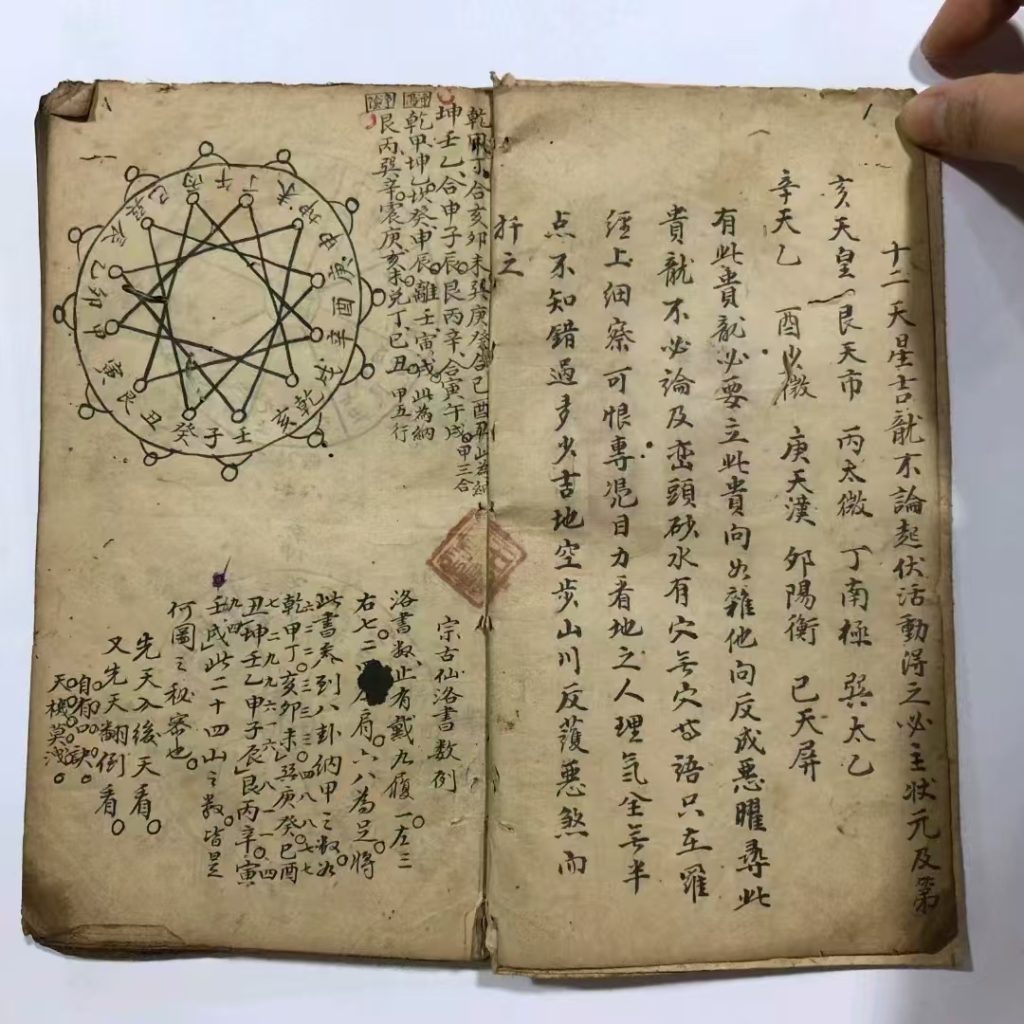 十二天星吉龍不論起伏活動得之必主狀元及第
亥天皇 艮天市 丙太微 丁南極 巽太乙
辛天乙 酉少微 庚天漢 卯陽衡 巳天屏
有此貴龍必要立此貴向如雜他向反成惡曜尋此
貴龍不必論及巒頭砂水有穴無穴等語只在羅
經上細察可恨專凴目力看地之人理氣全無半
点不知錯過多少吉地空步山川反護惡煞而
扦之
乾甲丁合亥卯未巽庚癸合巳酉丑
坤壬乙合申子辰艮丙辛合寅午戌
甲三合
乾甲坤乙坎癸申辰離壬寅戌此為納
艮丙巽辛震庚亥未兌丁巳丑
甲五行
丙午丁未坤申庚酉辛戌乾亥壬子癸丑艮寅甲卯乙辰巽巳
宗古仙洛書數例
洛書数止有戴九履一左三
右七二 肩六八為足將
此書奏到八卦納甲之数如
六二二三三三四八八七七
乾甲丁亥卯未巽庚癸巳酉
七二九九六一六八一一四
丑坤壬乙申子辰艮丙辛寅
九四
壬 此二十四山之数皆是
何圖之秘密也
先天入後天看
又先天翻倒看
自有口訣
天機莫洩